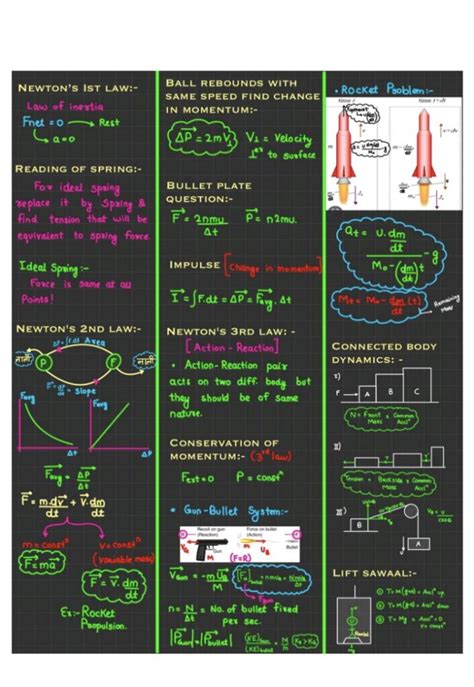 NEWTON'S 1ST LAW:-
Law of inertia
Fnet = 0 → Rest
→ a=0
READING OF SPRING:-
For ideal spring
replace it by Spring &
find tension that will be
equivalent to spring force.
Ideal Spring :-
Force is same at all
Points!
NEWTON'S 2ND LAW:-
ΔP = ∫F.dt = Area
नानी P F नानी
F = dP/dt = Slope
Favg
Favg
Δt
ΔP
Favg = ΔP/Δt
F = m.dv/dt + v.dm/dt
m = constⁿ
v = constⁿ
(variable mass)
F = ma
F = v. dm/dt
Ex:- Rocket
Propulsion.
BALL REBOUNDS WITH
SAME SPEED FIND CHANGE
IN MOMENTUM:-
ΔP = 2mV⊥
V⊥ = Velocity
to surface
BULLET PLATE
QUESTION:-
F = 2nmu/Δt
P = n2mu.
IMPULSE [Change in momentum]
I = ∫F.dt = ΔP = Favg. Δt
NEWTON'S 3RD LAW: -
[Action - Reaction]
• Action-Reaction pair
acts on two diff. body but
they should be of same
nature.
CONSERVATION OF
MOMENTUM:- (3rd law)
Fext = 0 P = constⁿ
* Gun-Bullet System:-
Recoil on gun
(Reaction)
Force on bullet
(Action)
Gun
(F=R)
Bullet
n = N/Δt = No. of bullet fired
per sec.
|Pgun| = |Pbullet|
• Rocket Problem:-
Time t
Time t + dt
at = u.dm/dt / Mo - (dm/dt)t - g
Mt = Mo - dm/dt (t)
Remaining
Mass
CONNECTED BODY
DYNAMICS: -
I)
F A B C
N = Front x Common
Mass Accⁿ
II)
Tension = Backside x Common
Mass Accⁿ
III)
LIFT SAWAAL:-
① T = M(g+a) = Accⁿ up.
② T = M(g-a) = Accⁿ down
③ T = Mg = Accⁿ = 0
v = const